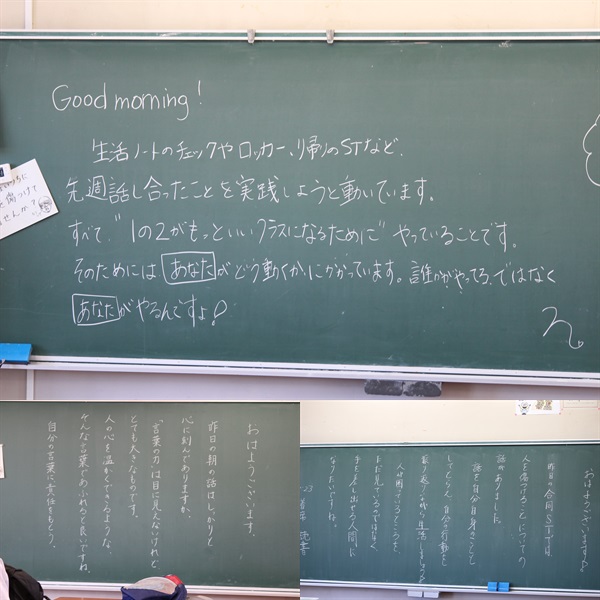 Good morning!
生活ノートのチェックやロッカー、帰りのSTなど、
先週話し合ったことを実践しようと動いています。
すべて、"1の2がもっといいクラスになるために"やっていることです。
そのためには あなた がどう動くか、にかかっています。誰かがやってる、ではなく
あなた がやるんですよ!
せんか?
おはようございます。
昨日の朝の話はしっかりと
心に刻んでありますか。
"言葉の力"は目に見えないけれど、
とても大きなものです。
人の心を温かくできるような
そんな言葉であふれると良いですね。
自分の言葉に責任をもとう。
おはようございます。
昨日の合同STでは、
人を傷つけることについての
話がありました。
話を自分自身のことと
してとらえ、自分の行動を
振り返りながら生活しましょう。
人が困っているところを、
ただ見ているのではなく
手を差し出せる人間に
なりたいですね。